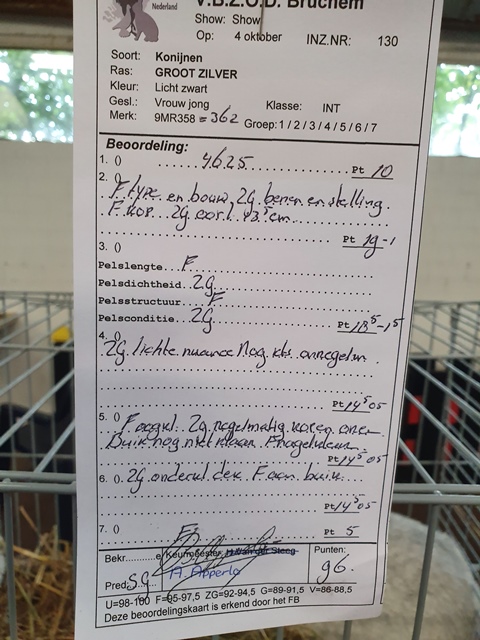 Nederland
V.B.Z.O.D. Bruchem
Show: Show
Op: 4 oktober INZ.NR: 130
Soort: Konijnen
Ras: GROOT ZILVER
Kleur: Licht zwart
Gesl.: Vrouw jong Klasse: INT
Merk: 9MR358 = 362 Groep: 1 / 2 / 3 / 4 / 5 / 6 / 7
Beoordeling:
1. () 4625 Pt 10
2. ()
F type en bouw, ZG benen en stelling.
F kop. ZG oorl. 13.5 cm
Pt 19 -1
3. ()
Pelslengte... F
Pelsdichtheid.. ZG
Pelsstructuur... F
Pelsconditie.. ZG Pt 18⁵ -1⁵
4. ()
ZG lichte nuance Nog iets onregelm
Pt 14⁵ 05
5. () F oogkl. ZG regelmatig
Buik nog niet klaar. F nagelkleur
Pt 14⁵ 05
6. () ZG onderkl dek F aan buik
Pt 14⁵ 05
7. () F Pt 5
Bekr. Keurmeester: H. van der Steeg Punten:
Pred. sg A. Apperlo 96.
U=98-100 F=95-97,5 ZG=92-94,5 G=89-91,5 V=86-88,5
Deze beoordelingskaart is erkend door het FB